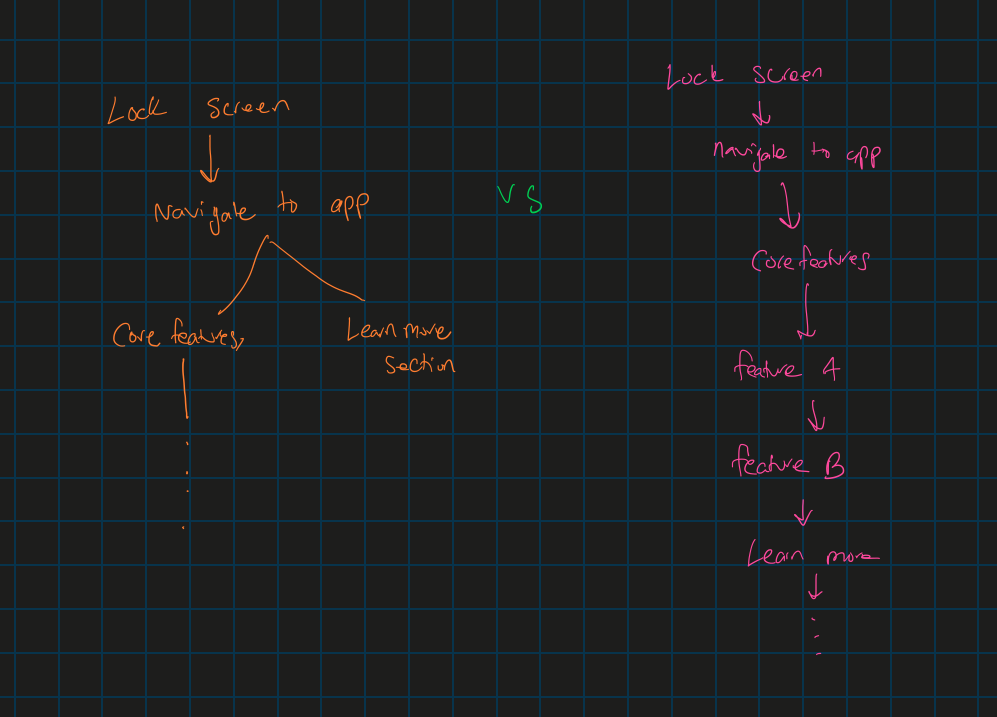 Lock Screen
Navigate to app
Core features,
Learn more
Section
VS
Lock Screen
Navigate to app
Core features
feature A
feature B
Learn more